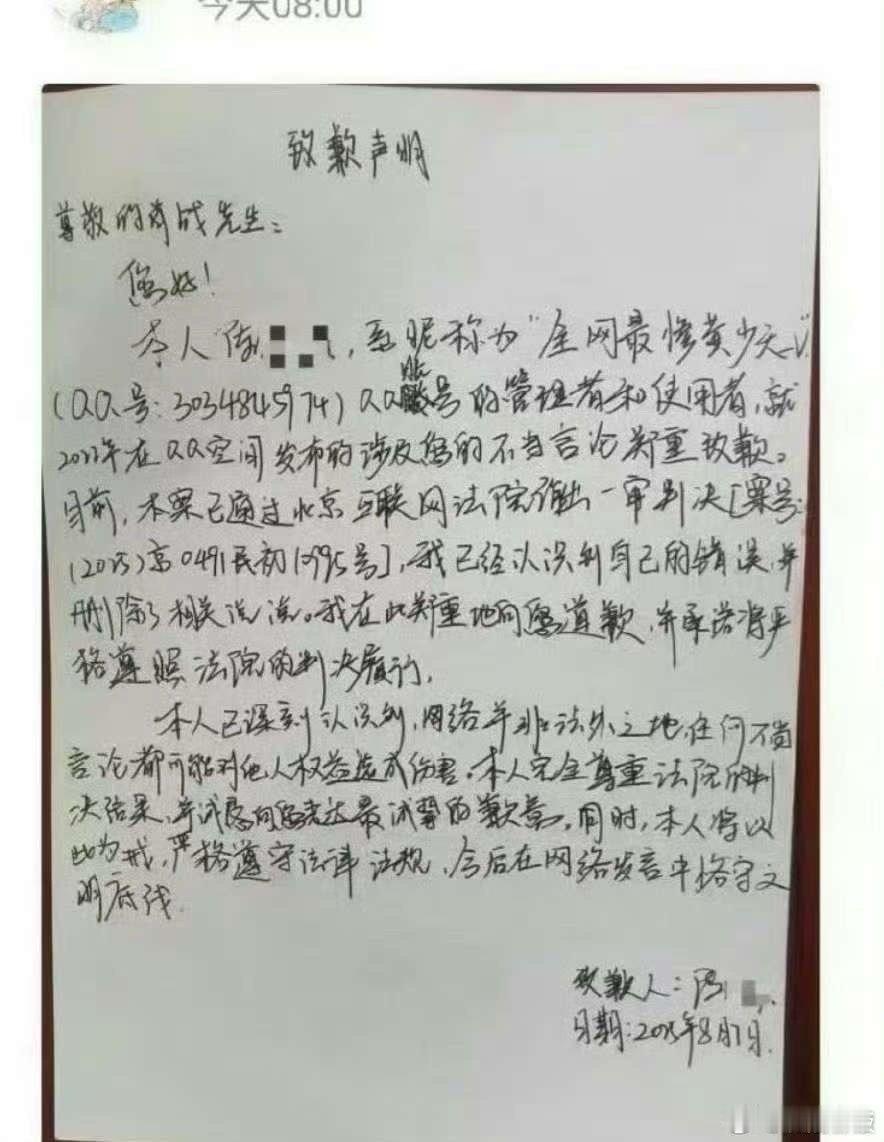 今天08:00
致歉声明
尊敬的肖战先生：
您好！
本人陈，系昵称为“全网最惨黄少天_V”
（QQ号：3034845974）QQ账号的管理者和使用者，就
2022年在QQ空间发布的涉及您的不当言论郑重致歉。
目前，本案已通过北京互联网法院作出一审判决［案号：
（2025）京0491民初995号］，我已经认识到自己的错误，并
删除了相关说说。我在此郑重地向您道歉，并承诺将严
格遵照法院的判决履行。
本人已深刻认识到，网络并非法外之地，任何不当
言论都可能对他人权益造成伤害。本人完全尊重法院的判
决结果，并诚恳向您表达最诚挚的歉意。同时，本人将以
此为戒，严格遵守法律法规，今后在网络发言中恪守文
明底线.
致歉人：陈
日期：2025年8月7日.